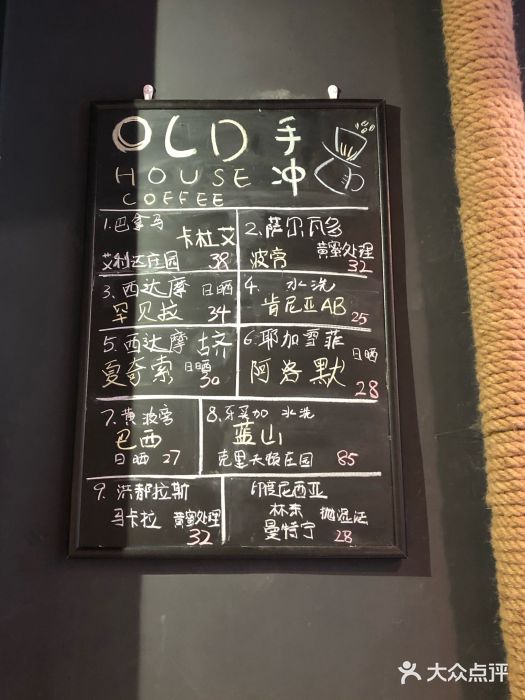 OLD 手冲
HOUSE
COFFEE
1.巴拿马
卡杜艾
艾利达庄园 38
2.萨尔瓦多
波旁 黄蜜处理
32
3.西达摩 日晒
罕贝拉 34
4. 水洗
肯尼亚AB 25
5.西达摩 古吉
夏奇索 日晒
30
6.耶加雪菲
日晒
阿洛默 28
7.黄波旁
巴西
日晒 27
8.牙买加 水洗
蓝山
克里夫顿庄园 85
9.洪都拉斯
马卡拉 黄蜜处理
32
印度尼西亚
林东 抛湿法
曼特宁 28
大众点评